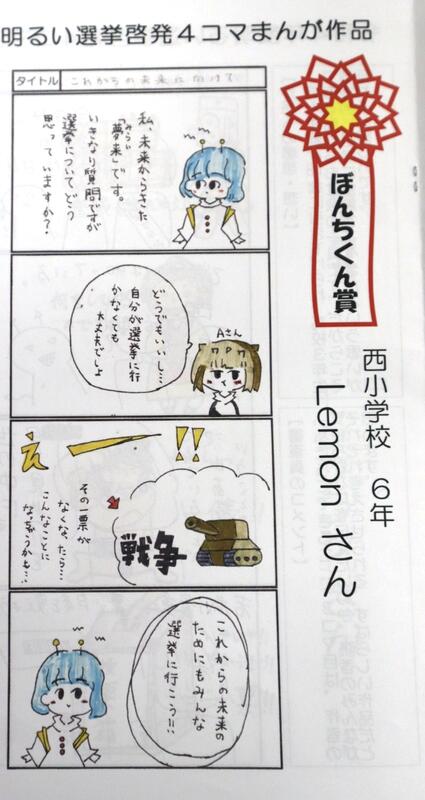 明るい選挙啓発4コマまんが作品
タイトル これからの未来に向けて
私、未来からきた
「夢来」です。
みらい
いきなり質問ですが
選挙についてどう
思っていますか?
どうでもいいし…
自分が選挙に行
かなくても
大丈夫でしょ
Aさん
えー!!
その一票が
なくなったら…
こんなことに
なっちゃうかも…
戦争
これからの未来の
ためにもみんな
選挙に行こう!!
ぼんちくん賞
西小学校 6年
Lemon さん